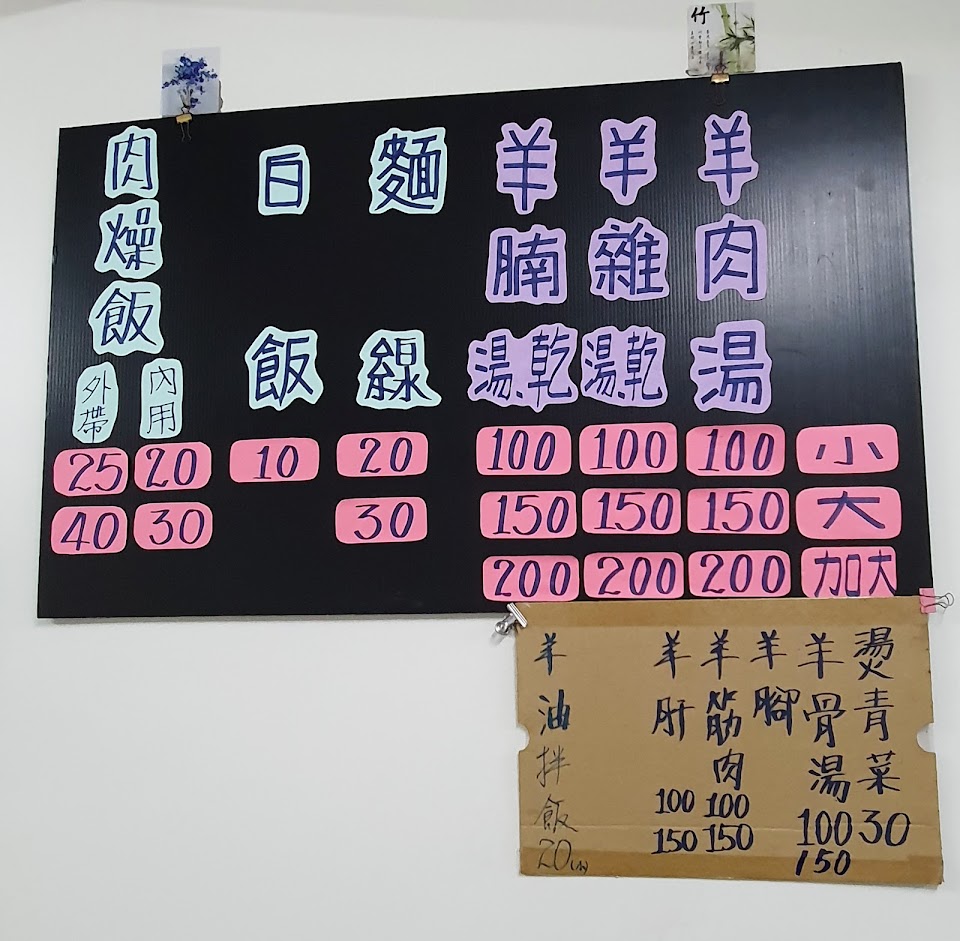 竹
小
大
加大
羊肉湯
100
150
200
羊雜湯、乾
100
150
200
羊腩湯、乾
100
150
200
麵線
20
30
白飯
10
肉燥飯
內用
20
30
外帶
25
40
燙青菜30
羊骨湯100
150
羊腳
羊筋肉100
150
羊肝100
150
羊油拌飯20(小)